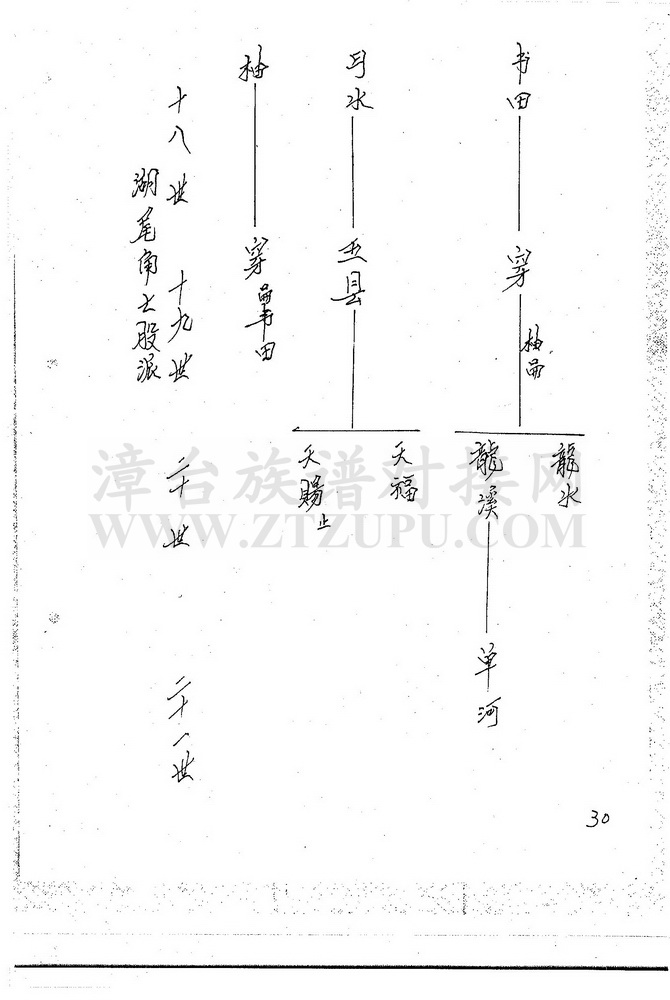 书田
穿
柚⾯
龍水
龍溪
单河
水
玉县
天福
天賜止
柚
穿
田
十八世
十九世
二十世
二十一世
湖尾角七股派
漳台族谱对接网
WWW.ZTZUPU.COM
30